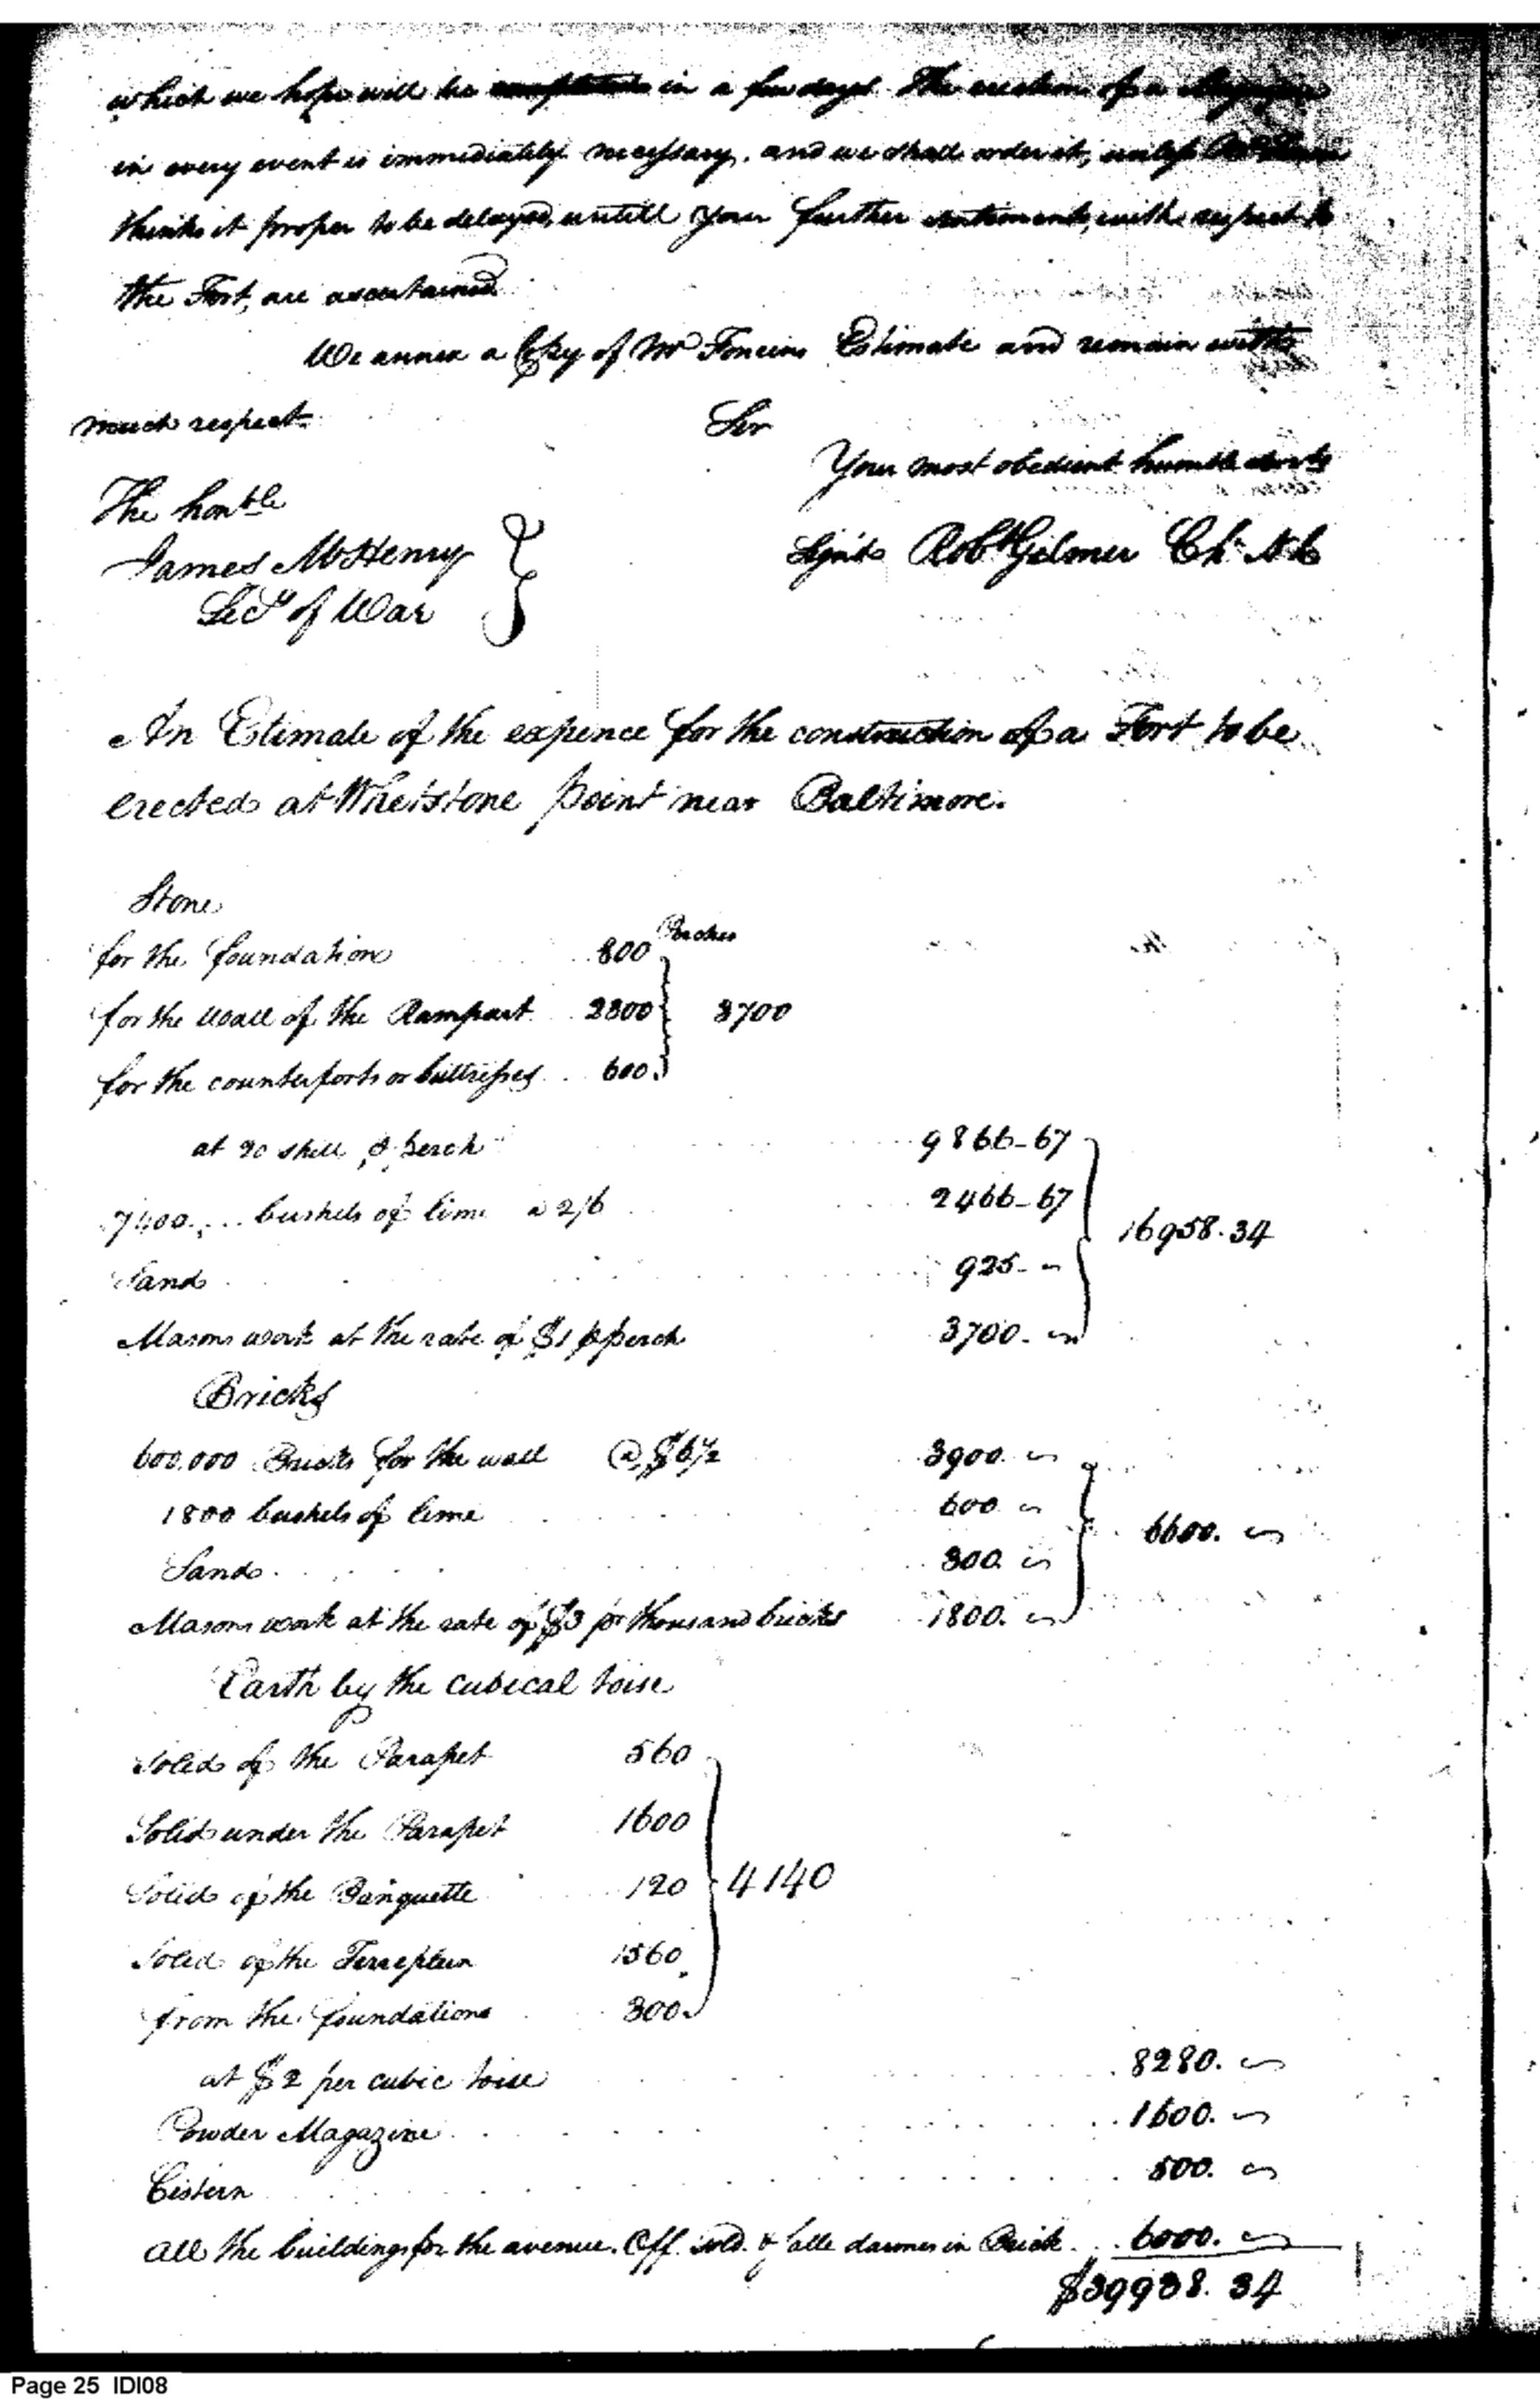 which we hope will be in a few days. The erection of a Magazine
in every event is immediately necessary, and we shall order it, unless
thinks it proper to be delayed, untill your further sentiments, with respect to
the Fort, are ascertained
We annex a Copy of Mr Foncins Estimate and remain with
much respect.
Sir
Your most obedient humble servts
The honble
James McHenry
Secy of War
Signd Robt Gilmor Ch.
An Estimate of the expence for the construction of a Fort to be
erected at Whetstone point near Baltimore.
Stone
Perches
for the foundation 800
for the wall of the Rampart 2300 3700
for the counterforts or buttresses 600
at 20 shill p perch 9866-67
7400 bushels of lime a 2/6 2466-67
16958.34
Sand 925-
Masons work at the rate of $1 p perch 3700-
Bricks
600.000 Bricks for the wall @ $6 1/2 3900
1800 bushels of lime 600
6600.
Sand 300
Masons work at the rate of $3 pr thousand bricks 1800.
Earth by the cubical toise
Solid of the Parapet 560
Solid under the Parapet 1600
Solid of the Banquette 120 4140
Solid of the Terreplein 1560
from the foundations 300
at $2 per cubic toise 8280.
Powder Magazine 1600.
Cistern 500.
All the buildings for the avenue. Off. Sold. & Salle darmes in Brick 6000.
$39938.34
Page 25 IDI08